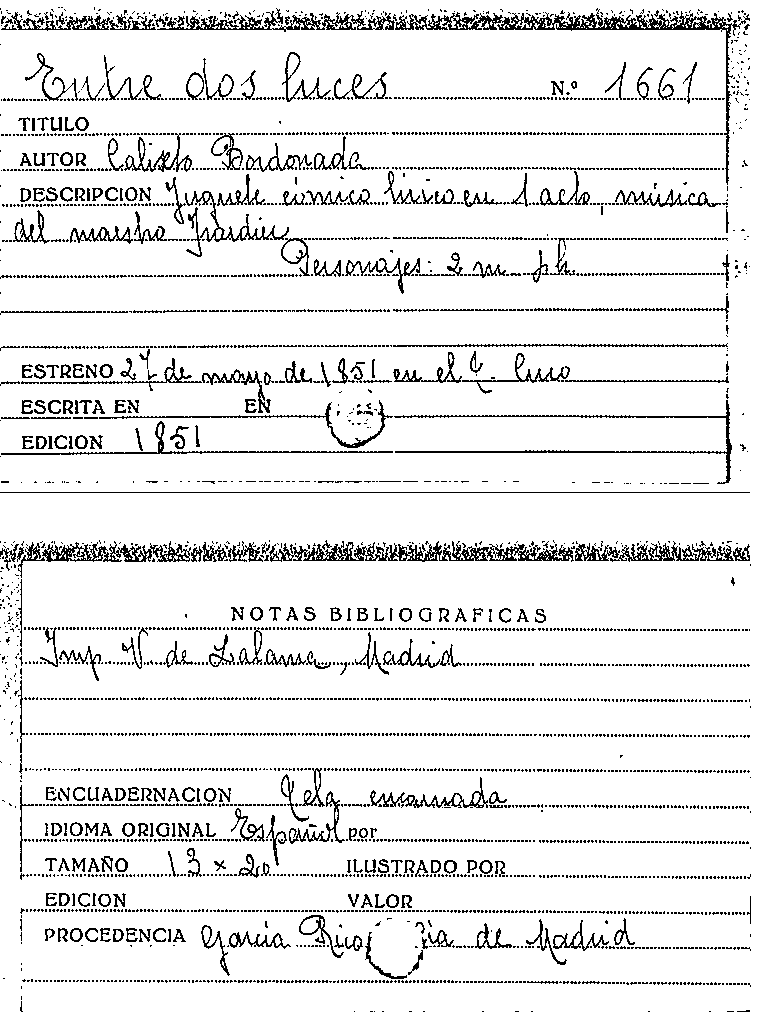 Entre dos luces N.º 1661
TITULO
AUTOR Calixto Bordonada
DESCRIPCION Juguete cómico lírico en 1 acto, música
del maestro Jardín
Personajes: 2 m. ph.
ESTRENO 27 de mayo de 1851 en el T. Circo
ESCRITA EN EN
EDICION 1851
NOTAS BIBLIOGRAFICAS
Imp V. de Lalama, Madrid
ENCUADERNACION Tela encarnada
IDIOMA ORIGINAL Español por
TAMAÑO 13 × 20 ILUSTRADO POR
EDICION VALOR
PROCEDENCIA García Rico de Madrid